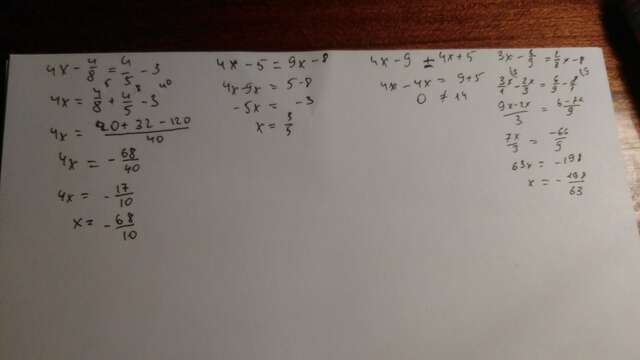 4x - 4/8 = 4/5 - 3
4x = 4/8 + 4/5 - 3
4x = 20 + 32 - 120 / 40
4x = - 68/40
4x = - 17/10
x = - 68/10
4x - 5 = 9x - 8
4x - 9x = 5 - 8
-5x = -3
x = 3/5
4x - 9 = 4x + 5
4x - 4x = 9 + 5
0 ≠ 14
9x - 2x / 3
7x/9 = -66/9
63x = -198
x = - 198/63